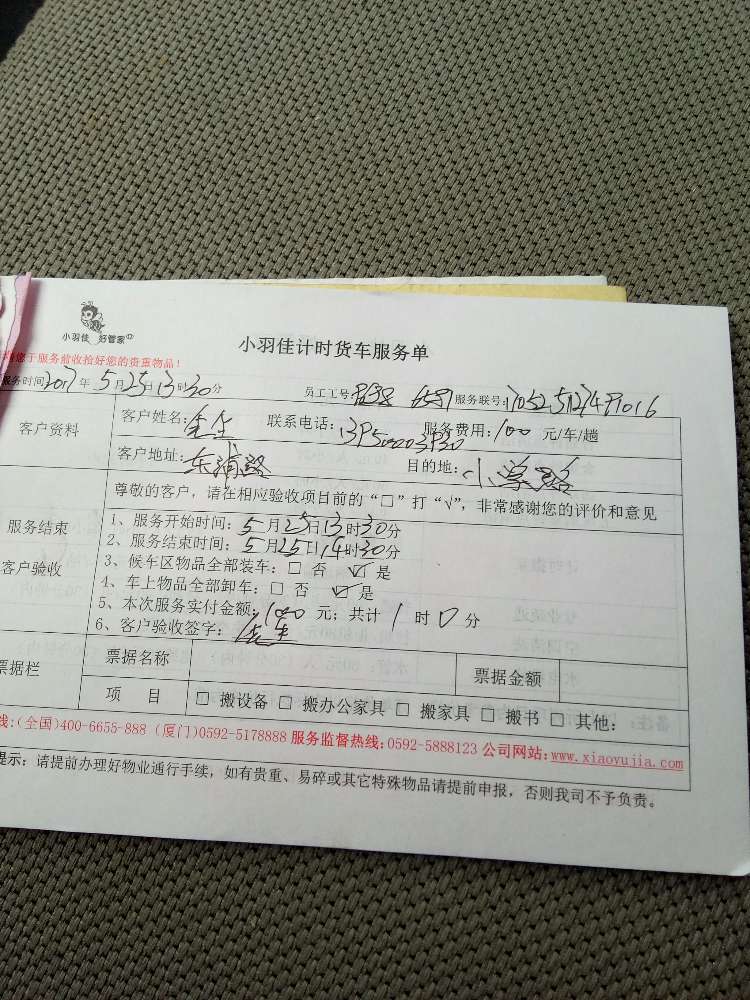 小羽佳 好管家
小羽佳计时货车服务单
您于服务前收拾好您的贵重物品！
服务时间2017年5月25日13时30分 员工工号: 服务联号:
客户资料 客户姓名: 联系电话: 服务费用:100元/车/趟
客户地址:东浦路 目的地:小学路
尊敬的客户，请在相应验收项目前的“□”打“√”，非常感谢您的评价和意见
服务结束
客户验收
1、服务开始时间：5月25日13时30分
2、服务结束时间：5月25日14时30分
3、候车区物品全部装车：□ 否 ☑ 是
4、车上物品全部卸车：□ 否 ☑ 是
5、本次服务实付金额：100元；共计1时0分
6、客户验收签字：
票据栏 票据名称 票据金额
项 目 □ 搬设备 □ 搬办公家具 □ 搬家具 □ 搬书 □ 其他：
线:(全国)400-6655-888 (厦门)0592-5178888 服务监督热线:0592-5888123 公司网站:www.xiaoyujia.com
提示：请提前办理好物业通行手续，如有贵重、易碎或其它特殊物品请提前申报，否则我司不予负责。